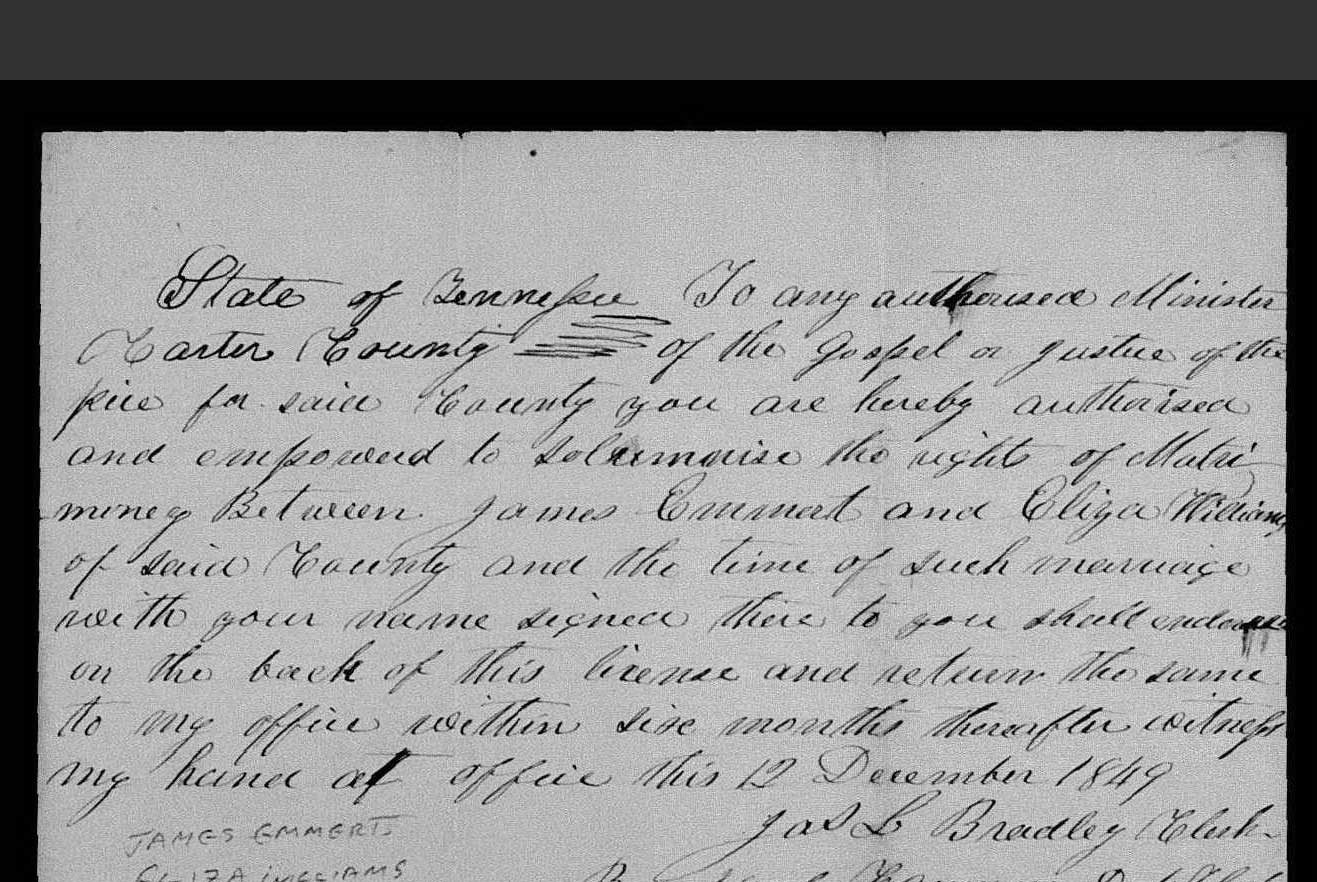 State of Tennessee To any authorised Minister
Carter County of the Gospel or Justice of the
pice for said County you are hereby authorised
and empowered to Solemnise the rights of Matri
mony Between James Emmert and Eliza Williams
of said County and the time of such marriage
with your name signed there to you shall endorse
on the back of this license and return the same
to my office within six months thereafter witness
my hand at office this 12 December 1849
Jas L Bradley Clerk
JAMES EMMERT
ELIZA WILLIAMS